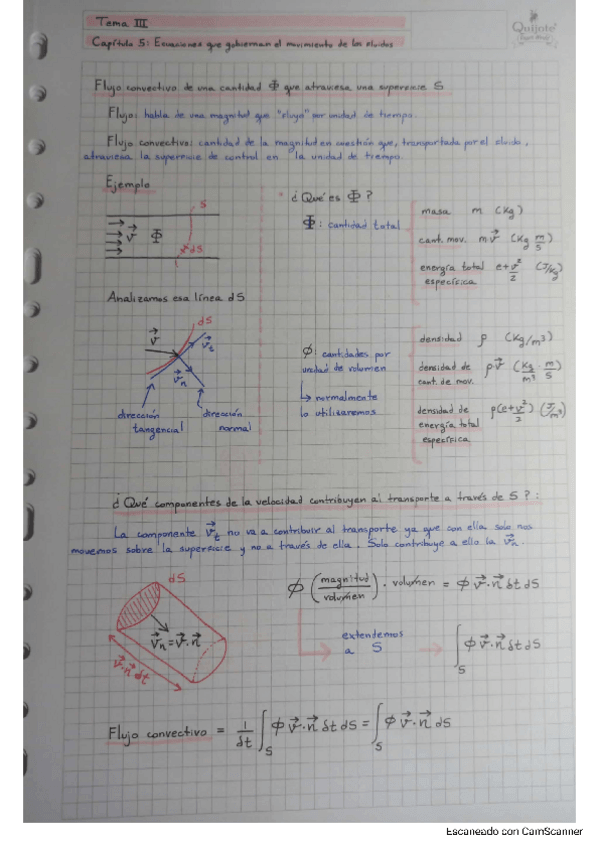 Tema III
Quijote
Capítulo 5: Ecuaciones que gobiernan el movimiento de los fluidos
Flujo convectivo de una cantidad Φ que atraviesa una superficie S
Flujo: habla de una magnitud que "fluye" por unidad de tiempo.
Flujo convectivo: cantidad de la magnitud en cuestión que, transportada por el fluido,
atraviesa la superficie de control en la unidad de tiempo.
Ejemplo
S
v⃗ Φ
dS
¿Qué es Φ?
Φ: cantidad total
masa m (Kg)
cant. mov. m v⃗ (Kg m/s)
energía total e+v²/2 (J/Kg)
específica
Analizamos esa línea dS
dS
v⃗
v⃗t
v⃗n
dirección
tangencial
dirección
normal
ϕ: cantidades por
unidad de volumen
↳ normalmente
lo utilizaremos
densidad ρ (Kg/m³)
densidad de ρv⃗ (Kg/m³ · m/s)
cant. de mov.
densidad de ρ(e+v²/2) (J/m³)
energía total
específica
¿Qué componentes de la velocidad contribuyen al transporte a través de S?:
La componente v⃗t no va a contribuir al transporte ya que con ella solo nos
movemos sobre la superficie y no a través de ella. Solo contribuye a ello la v⃗n.
dS
v⃗n = v⃗·n⃗
v⃗·n⃗ dt
ϕ (magnitud/volumen) · volumen = ϕ v⃗·n⃗ δt dS
extendemos
a S
→ ∫S ϕ v⃗·n⃗ δt dS
Flujo convectivo = 1/δt ∫S ϕ v⃗·n⃗ δt dS = ∫S ϕ v⃗·n⃗ dS
Escaneado con CamScanner